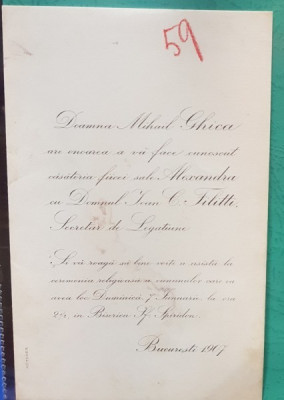 59
Doamna Mihail Ghica
are onoarea a vă face cunoscut
căsătoria fiicei sale Alexandra
cu Domnul Ioan C. Filitti,
Secretar de Legațiune
și vă roagă să bine-voiți a asista la
ceremonia religioasă a cununiei care va
avea loc Duminică, 7 Ianuarie la ora
în Biserica Sf. Spiridon.
București 1907